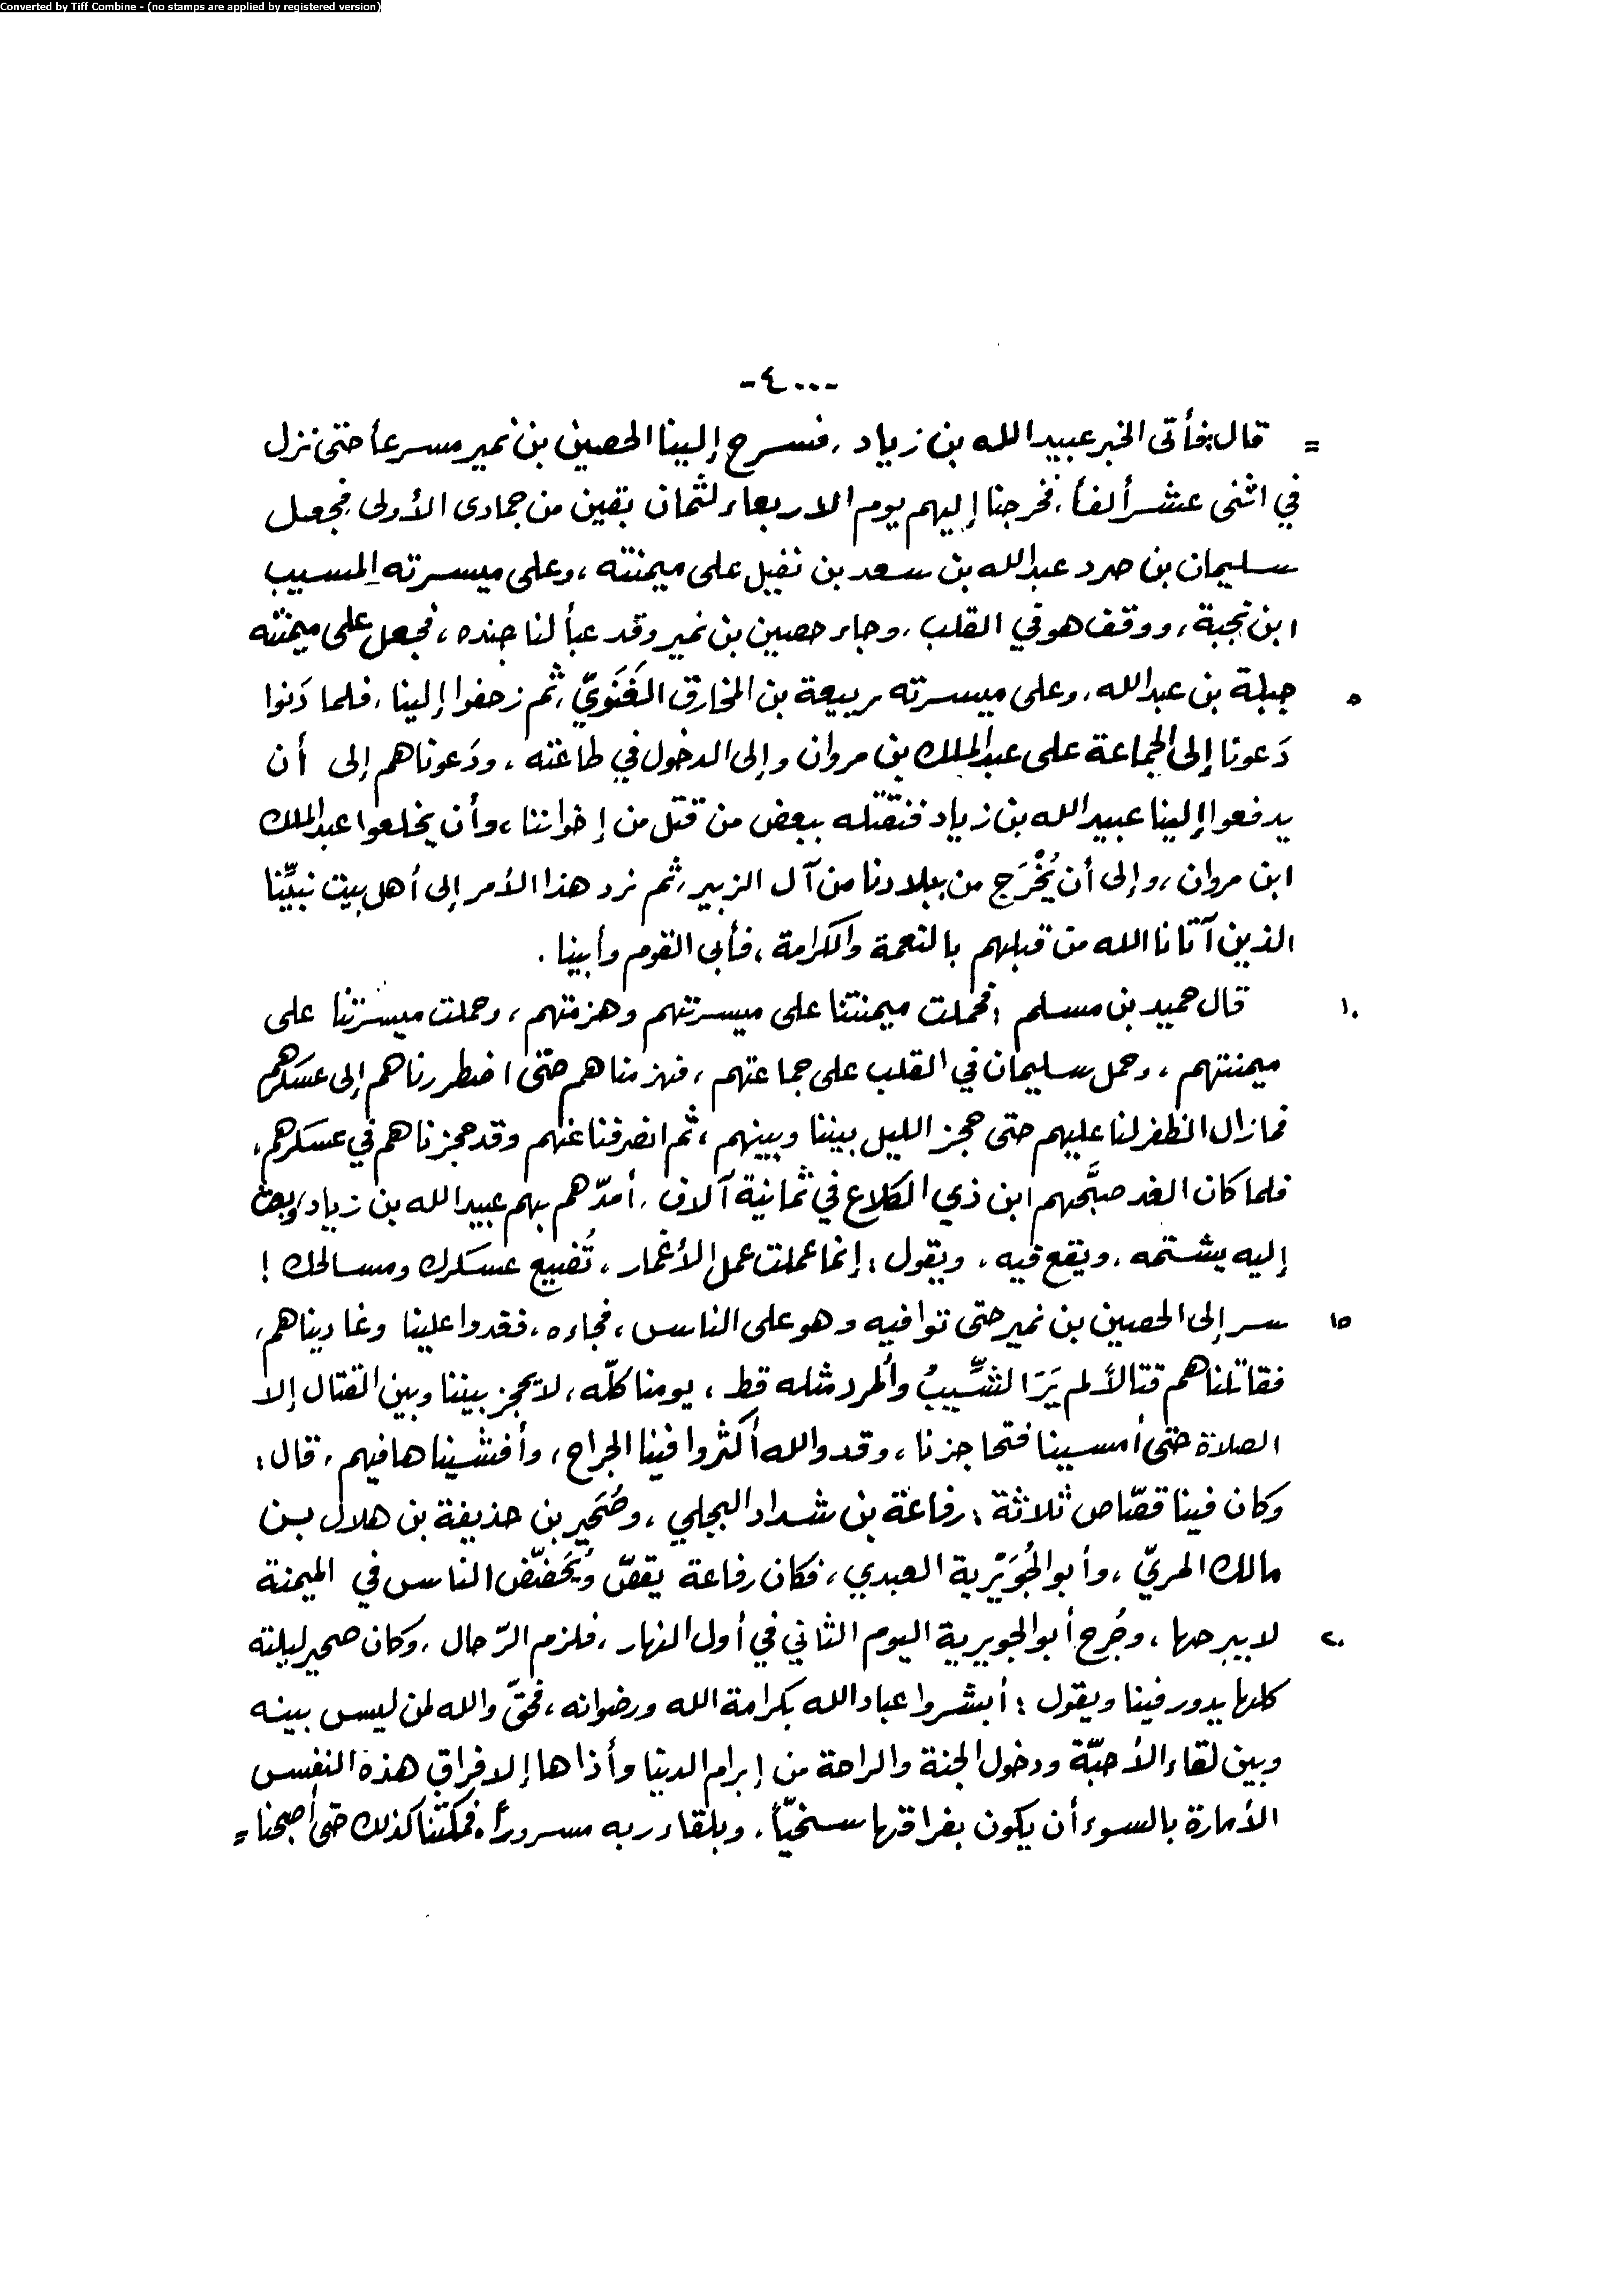 Converted by Tiff Combine - (no stamps are applied by registered version)
-٤٠٠-
= قال: فأتى الخبر عبيدالله بن زياد، فسرح إلينا الحصين بن نمير مسرعاً حتى نزل
في اثنى عشر ألفاً، فخرجنا إليهم يوم الاربعاء لثمان بقين من جمادى الأولى، فجعل
سليمان بن صرد عبدالله بن سعد بن نفيل على ميمنته، وعلى ميسرته المسيب
ابن نجبة، ووقف هو في القلب، وجاء حصين بن نمير وقد عبأ لنا جنده، فجعل على ميمنته
٥ جبلة بن عبدالله، وعلى ميسرته ربيعة بن المخارق الغَنَويّ، ثم زحفوا إلينا، فلما دَنوا
دَعونا إلى الجماعة على عبدالملك بن مروان وإلى الدخول في طاعته، ودَعوناهم إلى أن
يدفعوا إلينا عبيدالله بن زياد فنقتله ببعض من قتل من إخواننا، وأن يخلعوا عبدالملك
ابن مروان، وإلى أن يُخْرَج من ببلادنا من آل الزبير، ثم نرد هذا الأمر إلى أهل بيت نبيِّنا
الذين آتانا الله من قبلهم بالنعمة والكرامة، فأبى القوم وأبينا.
١٠ قال حميد بن مسلم: فحملت ميمنتنا على ميسرتهم وهزمتهم، وحملت ميسرتنا على
ميمنتهم، وحمل سليمان في القلب على جماعتهم، فهزمناهم حتى اضطررناهم إلى عسكرهم
فمازال الظفر لنا عليهم حتى حجز الليل بيننا وبينهم، ثم انصرفنا عنهم وقد حجزناهم في عسكرهم،
فلما كان الغد صبَّحهم ابن ذي الكلاع في ثمانية آلاف، أمدّهم بهم عبيدالله بن زياد، وبعث
إليه يشتمه، ويقع فيه، ويقول: إنما عملت عمل الأغمار، تُضيع عسكرك ومسالحك!
١٥ سر إلى الحصين بن نمير حتى توافيه وهو على الناس، فجاءه، فغدوا علينا وغاديناهم،
فقاتلناهم قتالاً لم يَرَ الشِّيبُ والمرد مثله قط، يومنا كلّه، لا يحجز بيننا وبين القتال إلا
الصلاة حتى أمسينا فتحاجزنا، وقد والله أكثروا فينا الجراح، وأفشيناها فيهم، قال:
وكان فينا قصّاص ثلاثة: رفاعة بن شداد البجلي، وصُحَير بن حذيفة بن هلال بن
مالك المريّ، وأبو الجُوَيْرية العبدي، فكان رفاعة يقصّ ويُحَضّض الناس في الميمنة
٢٠ لا يبرحها، وجُرح أبو الجويرية اليوم الثاني في أول النهار، فلزم الرّحال، وكان صحير ليلته
كلها يدور فينا ويقول: أبشروا عباد الله بكرامة الله ورضوانه، فحقّ والله لمن ليس بينه
وبين لقاء الأحبّة ودخول الجنة والراحة من إبرام الدنيا وأذاها إلا فراق هذه النفس
الأمارة بالسوء أن يكون بفراقها سخيّاً، وبلقاء ربه مسروراً، فمكثنا كذلك حتى أصبحنا =